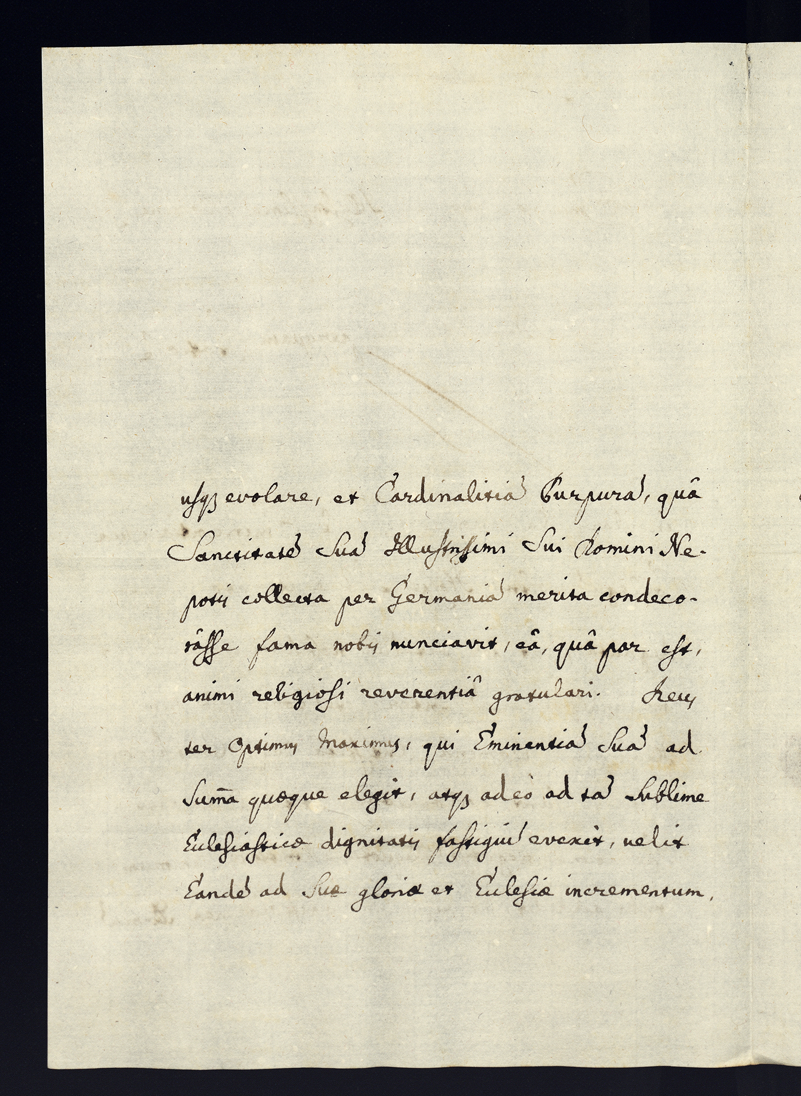 usq₃ evolare, et Cardinalitiā Purpurā, quâ
Sanctitatē Suā Illustrissimi Sui Domini Ne-
potis collecta per Germaniā merita condeco-
râsse fama nobis nunciavit, eâ, quâ par est,
animi religiosi reverentiâ gratulari. Deus
ter Optimus Maximus, qui Eminentiā Suā ad
Sum̄a quæque elegit, atq₃ adeò ad tā Sublime
Eclesiasticæ dignitatis fastigiū evexit, velit
Eandē ad Suæ gloriæ et Eclesiæ incrementum,